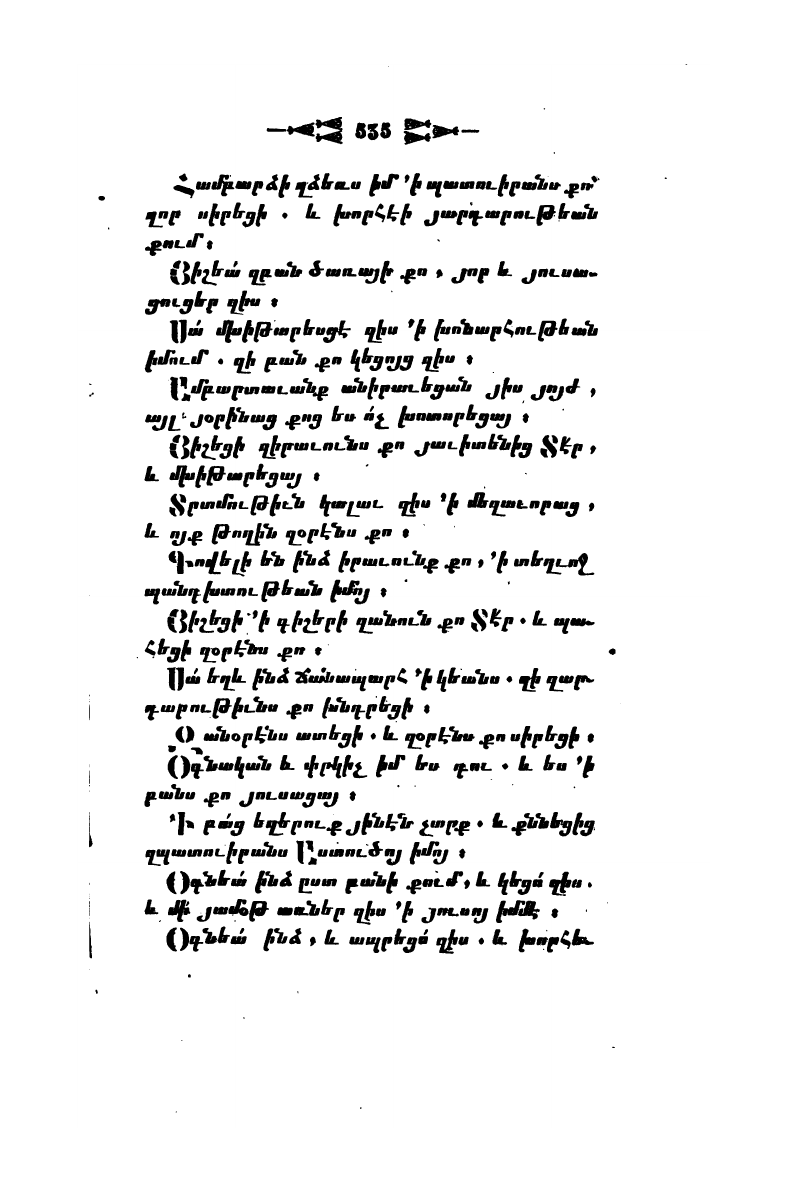 535
Համբարձի զձեռս իմ ՚ի պատուիրանս քո՝
զոր սիրեցի . և խորհէի յարդարութեան
քում ։
Յիշեա՛ զբան ծառայի քո , յոր և յուսա-
ցուցեր զիս ։
Սա՛ մխիթարեսցէ զիս ՚ի խոնարհութեան
իմում . զի բան քո կեցոյց զիս ։
Ամբարտաւանք անիրաւեցան յիս յոյժ ,
այլ յօրինաց քոց ես ո՛չ խոտորեցայ ։
Յիշեցի զիրաւունս քո յաւիտենից Տէր ,
և մխիթարեցայ ։
Տրտմութիւն կալաւ զիս ՚ի մեղաւորաց ,
և ոյք թողին զօրէնս քո ։
Գովելի են ինձ իրաւունք քո , ՚ի տեղւոջ
պանդխտութեան իմոյ ։
Յիշեցի ՚ի գիշերի զանուն քո Տէր . և պա-
հեցի զօրէնս քո ։
Սա՛ եղև ինձ ճանապարհ ՚ի կեանս . զի զար-
դարութիւնս քո խնդրեցի ։
Զանօրէնս ատեցի . և զօրէնս քո սիրեցի ։
Օգնական և փրկիչ իմ ես դու . և ես ՚ի
բանս քո յուսացայ ։
՚Ի բա՛ց եղերուք յինէն չարք . և քննեցից
զպատուիրանս Աստուծոյ իմոյ ։
Օգնեա՛ ինձ ըստ բանի քում , և կեցո՛ զիս .
և մի՛ յամօթ առներ զիս ՚ի յուսոյ իմմէ ։
Օգնեա՛ ինձ , և ապրեցո՛ զիս . և խորհե-